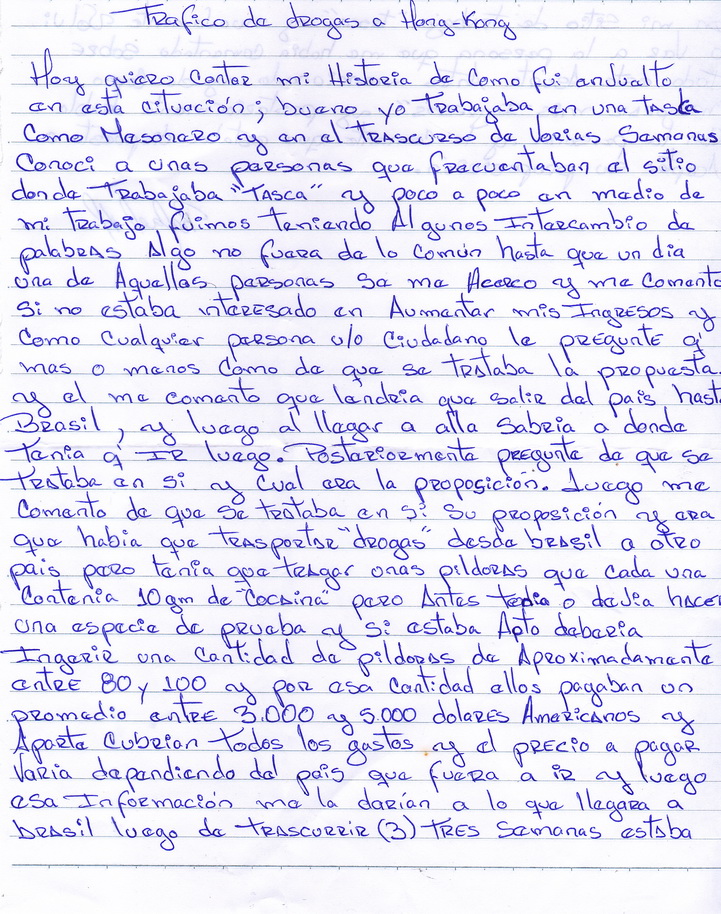 Trafico de drogas a Hong-Kong
Hoy quiero contar mi Historia de como fui enVuelto
en esta cituación; bueno yo trabajaba en una tasca
Como Mesonero y en el TRASCURSO de Varias Semanas
Conoci a unas personas que frecuentaban el sitio
donde Trabajaba "TASCA" y poco a poco en medio de
mi trabajo, fuimos teniendo Algunos Intercambio de
palabras Algo no fuera de lo común hasta que un dia
una de Aquellas personas se me Acerco y me comento
Si no estaba interesado en Aumentar mis Ingresos y
Como Cualquier persona y/o Ciudadano le PREGUNTE q'
mas o menos como de que se trataba la propuesta.
y el me comento que tendria que salir del pais hast
Brasil, y luego al llegar a alla Sabria a donde
tenia q' IR luego. Posteriormente PREGUNTE de que se
trataba en si y Cual era la proposición. Luego me
Comento de que se trataba en si su proposición y era
que habia que TRASPORTAR "drogas" desde brasil a otro
pais pero tenia que tragar unas pildoras que cada una
Contenia 10gm de "Cocaina" pero Antes o devia hacer
una especie de prueba y si estaba Apto deberia
Ingerir una Cantidad de pildoras de Aproximadamente
entre 80 y 100 y por esa Cantidad ellos pagaban un
promedio entre 3.000 y 5.000 dolares Americanos y
Aparte Cubrian todos los gastos y el precio a pagar
Varia dependiendo del pais que fuera a ir y luego
esa Información me la darían a lo que llegara a
brasil luego de TRASCURRIR (3) TRES Semanas estaba